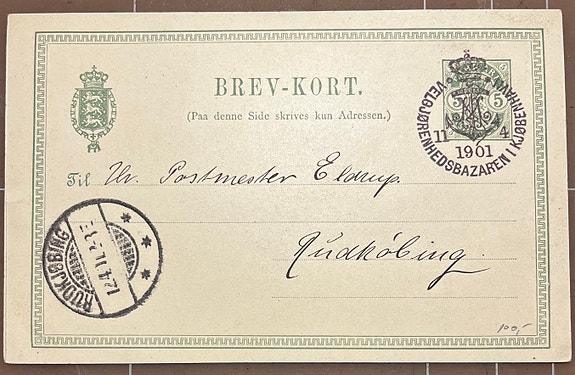 BREV-KORT.
(Paa denne Side skrives kun Adressen.)
5 5
VELGJØRENHEDSBAZAREN I KJØBENHAVN
11 4
1901
Til Hr. Postmester Eldrup.
Rudköbing.
RUDKJØBING
12.4.11. 2-3 E
100,-